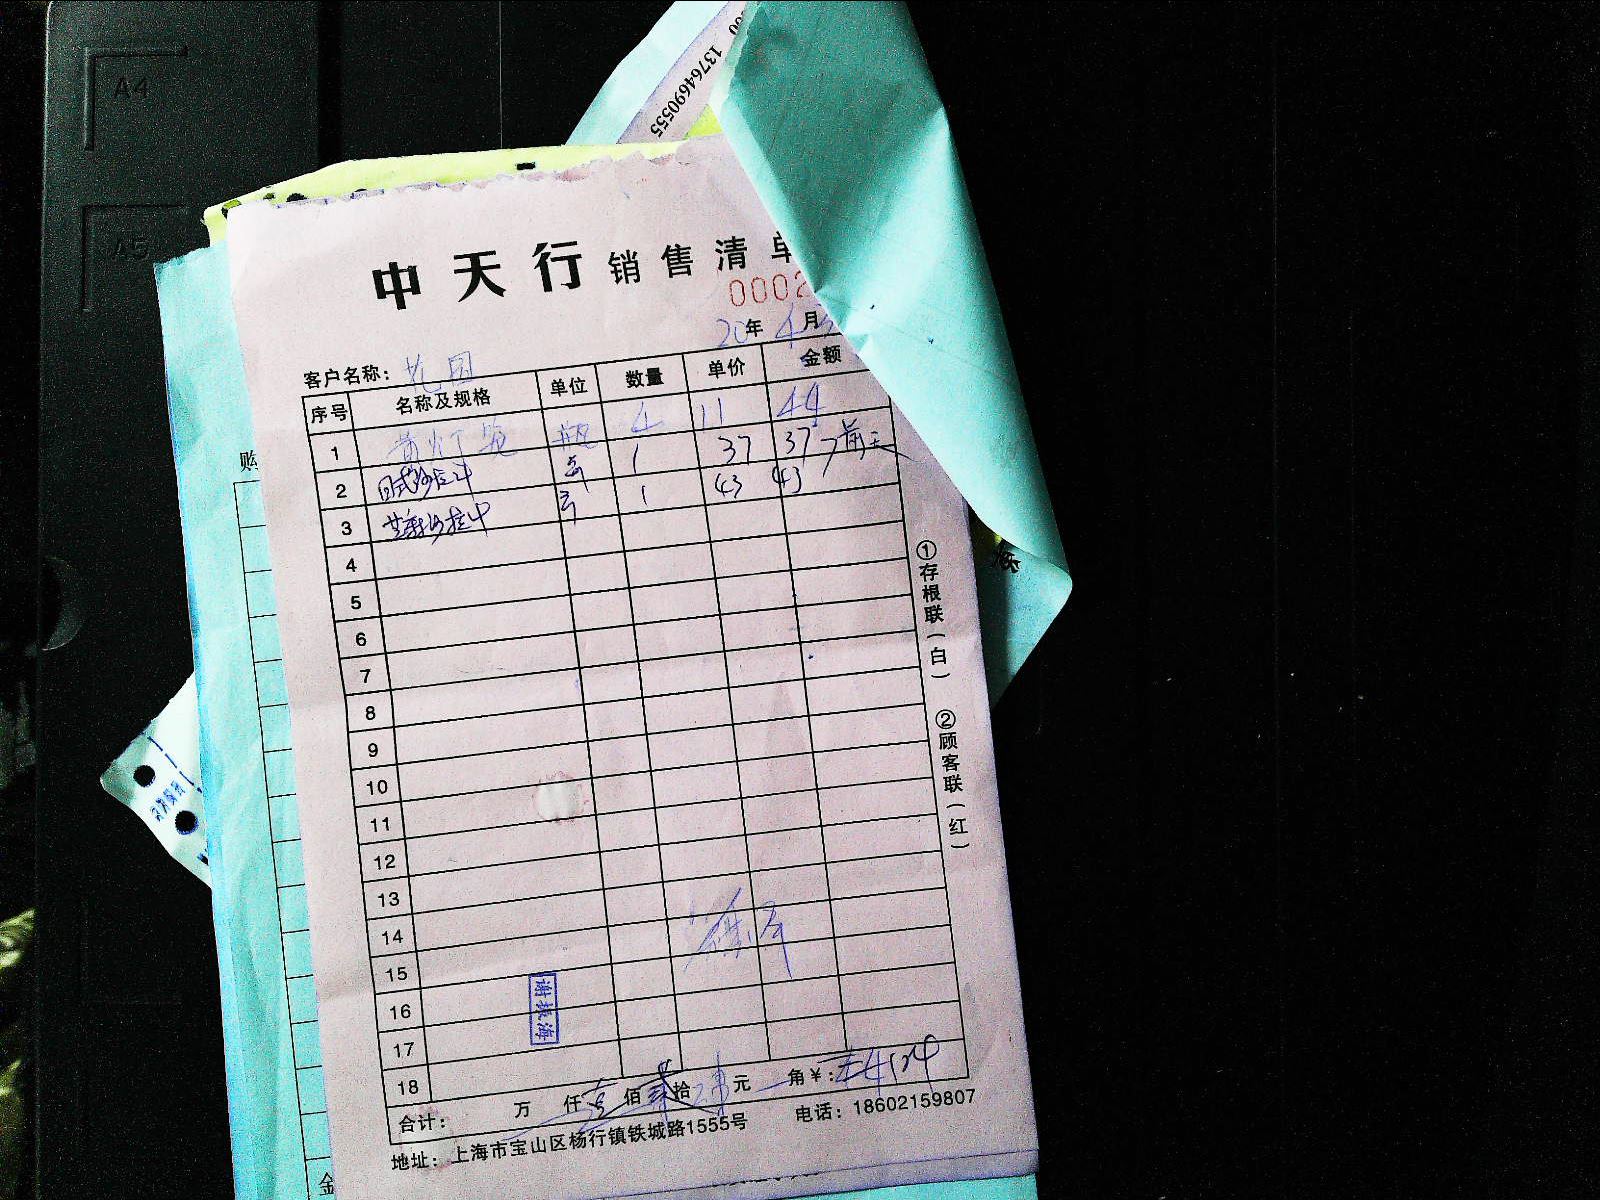 A4
A5
13764690555
中天行 销售清单
0002
20年 4月
客户名称： 花园
序号 名称及规格 单位 数量 单价 金额
1 黄灯笼 瓶 4 11 44
2 日式沙拉汁 1 37 37 前天
3 芝麻沙拉汁 1 43 43
4
5
6
7
8
9
10
11
12
13
14
15
16
17
18
谢振海
合计： 万 仟壹佰贰拾 元 角￥: 124
地址：上海市宝山区杨行镇铁城路1555号 电话：18602159807
①存根联（白） ②顾客联（红）
购
金